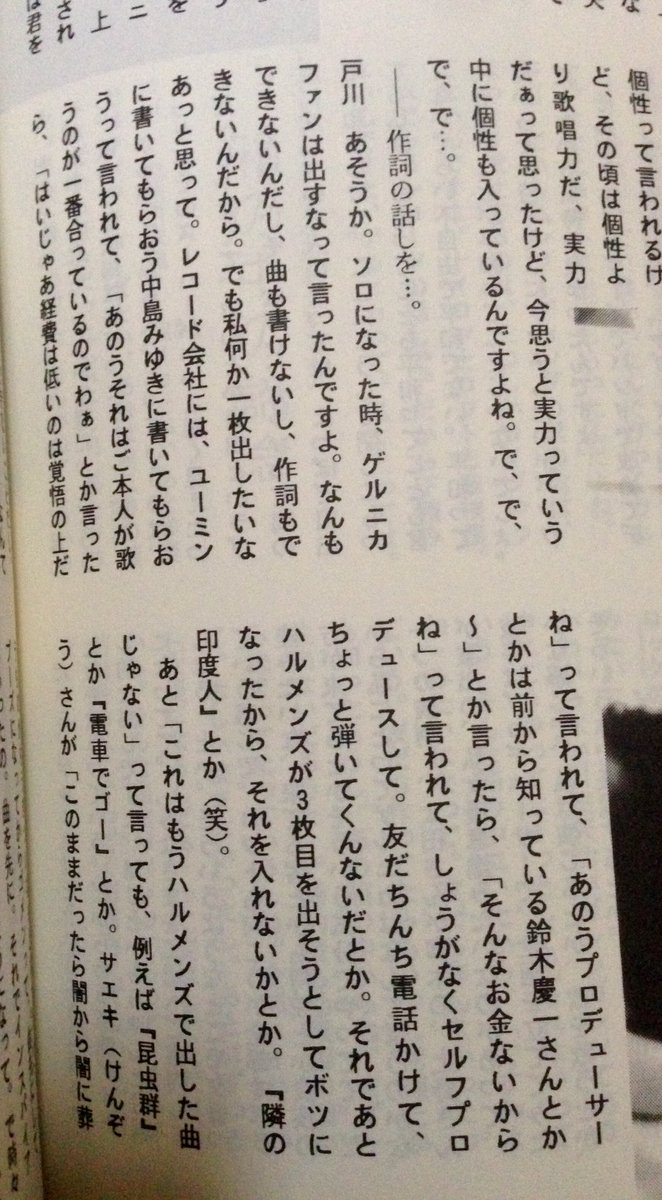 個性って言われるけ
ど、その頃は個性よ
り歌唱力だ、実力
だぁって思ったけど、今思うと実力っていう
中に個性も入っているんですよね。で、で、
で、で…。
── 作詞の話しを…。
戸川　あそうか。ソロになった時、ゲルニカ
ファンは出すなって言ったんですよ。なんも
できないんだし、曲も書けないし、作詞もで
きないんだから。でも私何か一枚出したいな
あっと思って。レコード会社には、ユーミン
に書いてもらおう中島みゆきに書いてもらお
うって言われて、「あのうそれはご本人が歌
うのが一番合っているのでわぁ」とか言った
ら、「はいじゃあ経費は低いのは覚悟の上だ
ね」って言われて、「あのうプロデューサー
とかは前から知っている鈴木慶一さんとか
〜」とか言ったら、「そんなお金ないから
ね」って言われて、しょうがなくセルフプロ
デュースして。友だちんち電話かけて、
ちょっと弾いてくんないだとか。それであと
ハルメンズが3枚目を出そうとしてボツに
なったから、それを入れないかとか。『隣の
印度人』とか（笑）。
あと「これはもうハルメンズで出した曲
じゃない」って言っても、例えば『昆虫群』
とか『電車でゴー』とか。サエキ（けんぞ
う）さんが「このままだったら闇から闇に葬